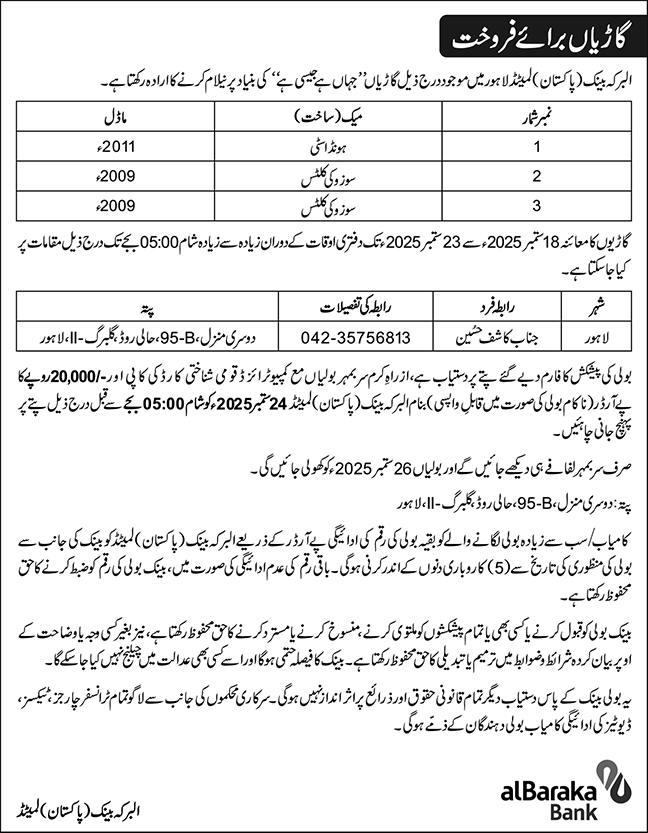 گاڑیاں برائے فروخت
البرکہ بینک (پاکستان) لمیٹڈ لاہور میں موجود درج ذیل گاڑیاں ”جہاں ہے جیسی ہے“ کی بنیاد پر نیلام کرنے کا ارادہ رکھتا ہے۔
نمبر شمار میک (ساخت) ماڈل
1 ہونڈا سٹی 2011ء
2 سوزوکی کلٹس 2009ء
3 سوزوکی کلٹس 2009ء
گاڑیوں کا معائنہ 18 ستمبر 2025ء سے 23 ستمبر 2025ء تک دفتری اوقات کے دوران زیادہ سے زیادہ شام 05:00 بجے تک درج ذیل مقامات پر
کیا جا سکتا ہے۔
شہر رابطہ فرد رابطہ کی تفصیلات پتہ
لاہور جناب کاشف حسین 042-35756813 دوسری منزل، 95-B، حالی روڈ، گلبرگ-II، لاہور
بولی کی پیشکش کا فارم دیے گئے پتے پر دستیاب ہے، ازراہِ کرم سر بمہر بولیاں مع کمپیوٹرائزڈ قومی شناختی کارڈ کی کاپی اور -/20,000 روپے کا
پے آرڈر (ناکام بولی کی صورت میں قابلِ واپسی) بنام البرکہ بینک (پاکستان) لمیٹڈ 24 ستمبر 2025ء کو شام 05:00 بجے سے قبل درج ذیل پتے پر
پہنچ جانی چاہئیں۔
صرف سر بمہر لفافے ہی دیکھے جائیں گے اور بولیاں 26 ستمبر 2025ء کو کھولی جائیں گی۔
پتہ: دوسری منزل، 95-B، حالی روڈ، گلبرگ-II، لاہور
کامیاب/سب سے زیادہ بولی لگانے والے کو بقیہ بولی کی رقم کی ادائیگی پے آرڈر کے ذریعے البرکہ بینک (پاکستان) لمیٹڈ کو بینک کی جانب سے
بولی کی منظوری کی تاریخ سے (5) کاروباری دنوں کے اندر کرنی ہوگی۔ باقی رقم کی عدم ادائیگی کی صورت میں، بینک بولی کی رقم کو ضبط کرنے کا حق
محفوظ رکھتا ہے۔
بینک بولی کو قبول کرنے یا کسی بھی یا تمام پیشکشوں کو ملتوی کرنے، منسوخ کرنے یا مسترد کرنے کا حق محفوظ رکھتا ہے، نیز بغیر کسی وجہ یا وضاحت کے
اوپر بیان کردہ شرائط و ضوابط میں ترمیم یا تبدیلی کا حق محفوظ رکھتا ہے۔ بینک کا فیصلہ حتمی ہوگا اور اسے کسی بھی عدالت میں چیلنج نہیں کیا جا سکے گا۔
یہ بولی بینک کے پاس دستیاب دیگر تمام قانونی حقوق اور ذرائع پر اثر انداز نہیں ہوگی۔ سرکاری محکموں کی جانب سے لاگو تمام ٹرانسفر چارجز، ٹیکسز،
ڈیوٹیز کی ادائیگی کامیاب بولی دہندگان کے ذمّے ہوگی۔
alBaraka
Bank
البرکہ بینک (پاکستان) لمیٹڈ